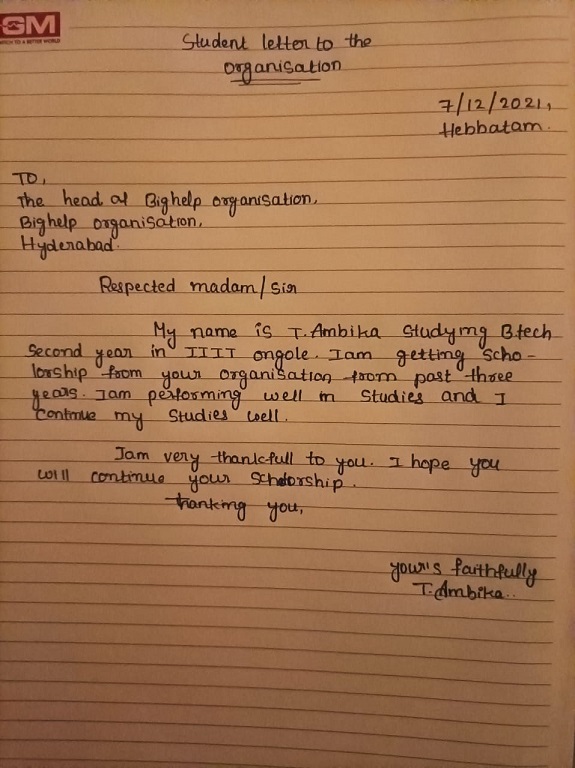 GM
Student letter to the
organisation
7/12/2021,
Hebbatam.
TO,
the head of Bighelp organisation,
Bighelp organisation,
Hyderabad.
Respected madam/sir
My name is T.Ambika Studying B.tech
Second year in IIIT ongole. Iam getting Scho-
lorship from your organisation from past three
years. Iam performing well in Studies and I
Continue my Studies well.
Iam very thankfull to you. I hope you
will continue your Scholorship.
thanking you,
your's faithfully
T.Ambika..